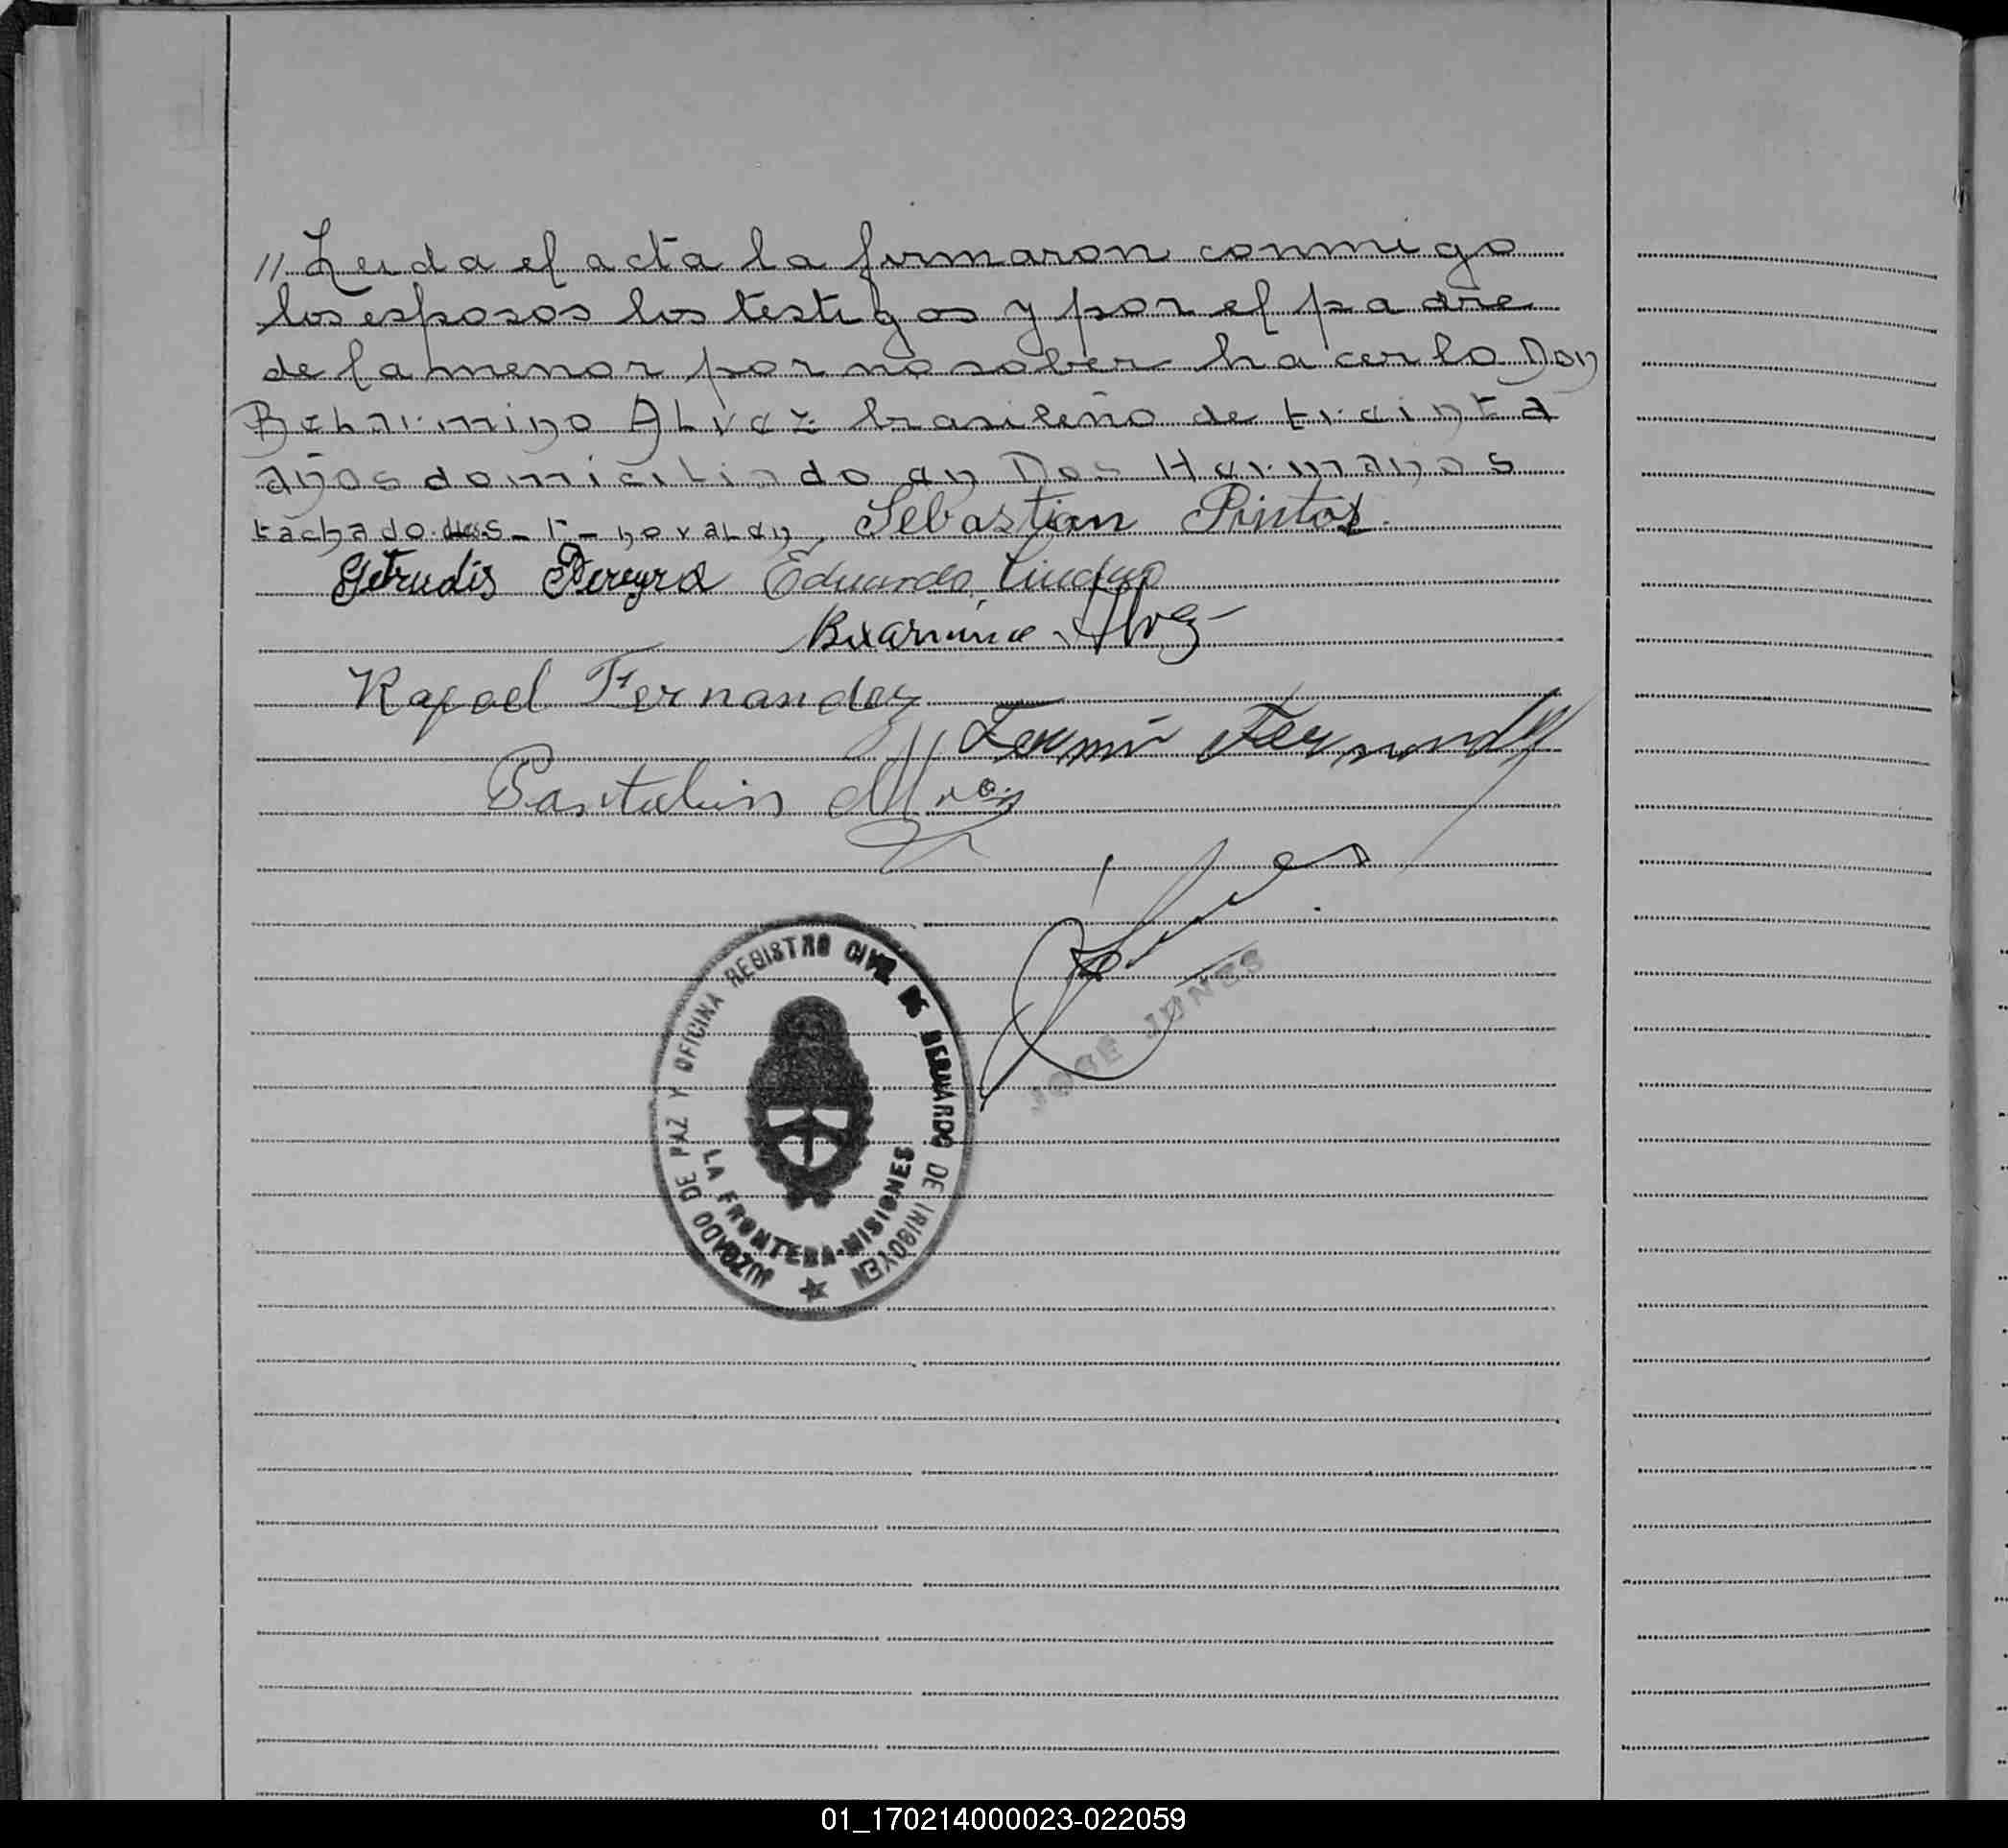 // Leida el acta la firmaron conmigo
los esposos los testigos y por el padre
de la menor por no saber hacerlo Don
Belarmino Alvez brasileño de treinta
años domiciliado en Dos Hermanos
tachado. dos - T - no valen, Sebastian Pintos.
Getrudis Pereyra Eduardo
Belarmino Alvez
Rafael Fernandez
Fermin Fernandez
Pantaleon
JOSE JUNES
JUZGADO DE PAZ Y OFICINA REGISTRO CIVIL DE BERNARDO DE IRIGOYEN
LA FRONTERA-MISIONES
01_170214000023-022059